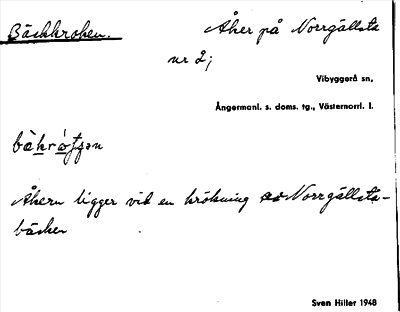 Bäckkroken. Åker på Norrgällsta
nr 2;
Vibyggerå sn.
Ångermanl. s. doms. tg., Västernorrl. l.
Åkern ligger vid en krökning av Norrgällsta-
bäcken
Sven Hiller 1948